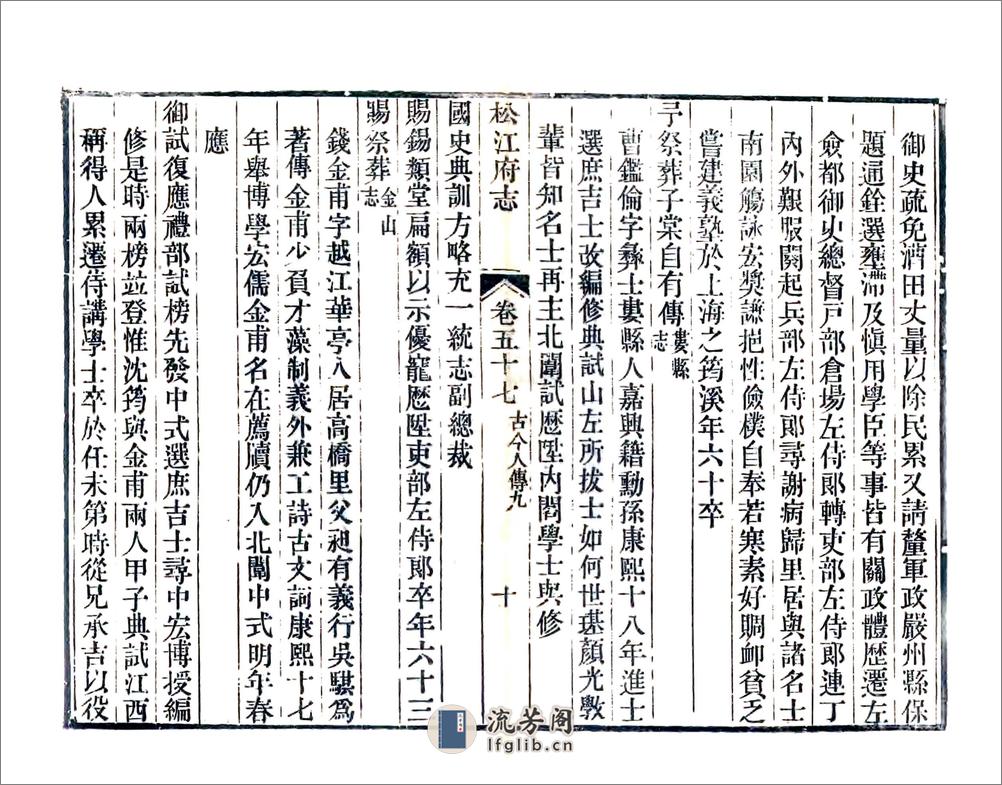 御史疏免濱田丈量以除民累又請釐軍政嚴州縣保
題通銓選壅滯及愼用學臣等事皆有關政體歷遷左
僉都御史總督戸部倉場左侍郞轉吏部左侍郞連丁
內外艱服闋起兵部左侍郞尋謝病歸里居與諸名士
南園觴詠宏奬謙挹性儉樸自奉若寒素好賙衈貧乏
嘗建義塾於上海之筠溪年六十卒
予祭葬子棠自有傳婁縣志
曹鑑倫字彝士婁縣人嘉興籍勳孫康熙十八年進士
選庶吉士改編修典試山左所拔士如何世璂顏光斆
輩皆知名士再主北闈試歷陞內閣學士與修
松江府志 卷五十七 古今人傳九 十
國史典訓方略充一統志副總裁
賜錫類堂扁額以示優寵歷陞吏部左侍郞卒年六十三
賜祭葬金山志
錢金甫字越江華亭人居高橋里父昶有義行吳騏爲
著傳金甫少負才藻制義外兼工詩古文詞康熙十七
年舉博學宏儒金甫名在薦牘仍入北闈中式明年春
應
御試復應禮部試榜先發中式選庶吉士尋中宏博授編
修是時兩榜竝登惟沈筠與金甫兩人甲子典試江西
稱得人累遷侍講學士卒於任未第時從兄承吉以役
流芳阁
lfglib.cn